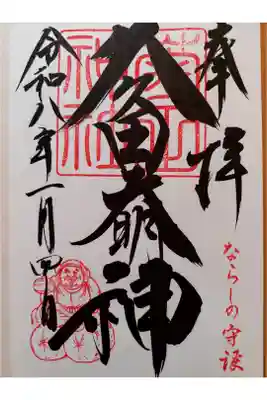 奉拝
ならしの守護
久々田大明神
令和八年一月四日